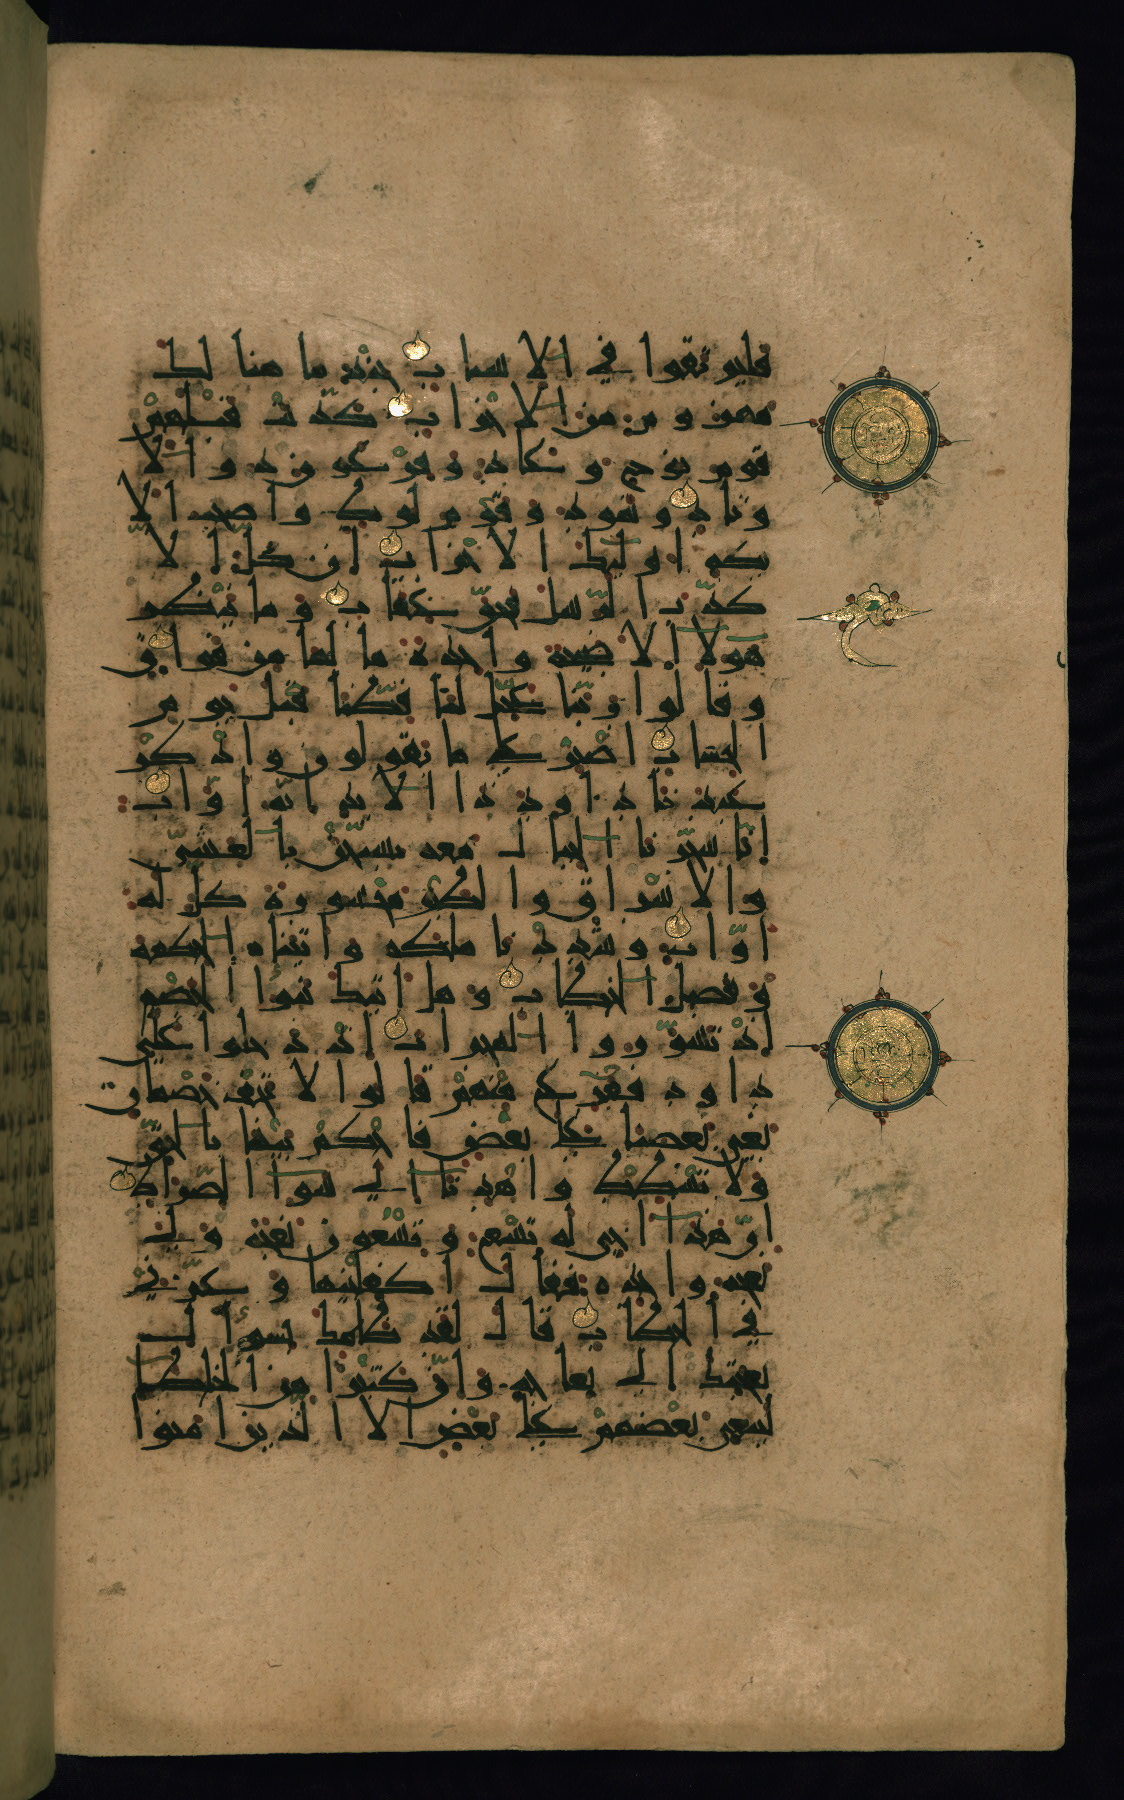 فليرتقوا في الاسباب جند ما هنالك
مهزوم من الاحزاب كذّبت قبلهم
قوم نوح وعاد وفرعون ذو الا
وتاد وثمود وقوم لوط واصحب الا
يكة اوليك الاحزاب ان كلّ الّا
كذّب الرّسل فحقّ عقاب وما ينظر
هولا الا صيحة واحدة ما لها من فواق
وقالوا ربّنا عجّل لنا قطّنا قبل يوم
الحساب اصبر على ما يقولون واذكر
عبدنا داود ذا الايد انّه اوّاب
انّا سخّرنا الجبال معه يسبّحن بالعشىّ
والاشراق والطير محشورة كل له
اوّاب وشددنا ملكه واتيناه الحكمة
وفصل الخطاب وهل اتيك نبوا الخصم
اذ تسوّروا المحراب اذ دخلوا على
داود ففزع منهم قالوا لا تخف خصمان
بغى بعضنا على بعض فاحكم بيننا بالحقّ
ولا تشطط واهدنا الى سوا الصّراط
انّ هذا اخي له تسع وتسعون نعجة ولي
نعجة واحدة فقال اكفلنيها وعزّني
في الخطاب قال لقد ظلمك بسوال
نعجتك الى نعاجه وانّ كثيرا من الخلطا
ليبغي بعضهم على بعض الا الذين امنوا